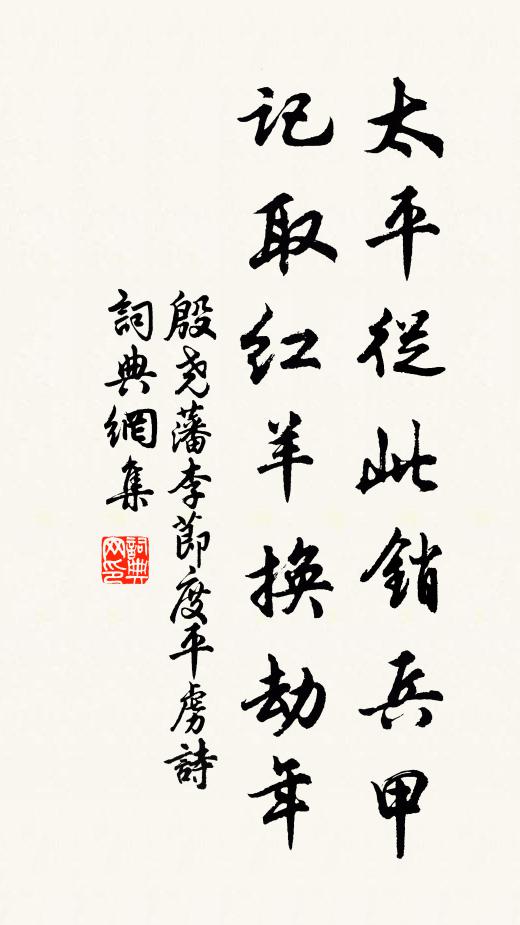 太平從此銷兵甲
記取红羊換劫年
殷尧藩李節度平虏詩
詞典網集
詞典
网印